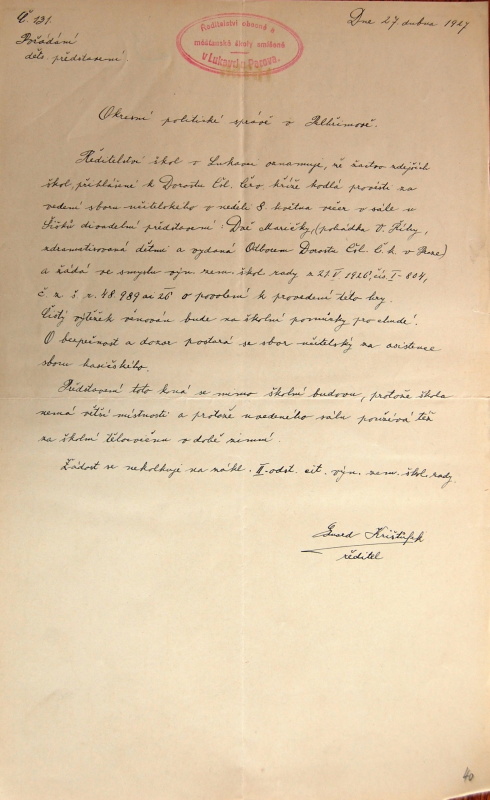 Č. 131.
Dne 27 dubna 1927
Pořádání
děts. představení.
Ředitelství obecné a
měšťanské školy smíšené
v Lukavci u Pacova.
Okresní politické správě v Pelhřimově.
Ředitelství škol v Lukavci oznamuje, že žactvo zdejších
škol, přihlášené k Dorostu Čsl. Červ. kříže hodlá provésti za
vedení sboru učitelského v neděli 8. května večer v sále u
Šišků divadelní představení: Dvě Maričky, (pohádka V. Říhy,
zdramatisovaná dětmi a vydaná Odborem Dorostu Čsl. Č. k. v Praze)
a žádá ve smyslu výn. zem. škol rady z 21. V. 1926, čís. I-804,
č. z. š. r. 48.989 ai 26 o povolení k provedení této hry.
Čistý výtěžek věnován bude na školní pomůcky pro chudé.
O bezpečnost a dozor postará se sbor učitelský za asistence
sboru hasičského.
Představení toto koná se mimo školní budovu, protože škola
nemá větší místnosti a protože uvedeného sálu používá též
za školní tělocvičnu v době zimní.
Žádost se nekolkuje na zákl. II. odst. cit. výn. zem. škol. rady.
Krištůfek
ředitel
40